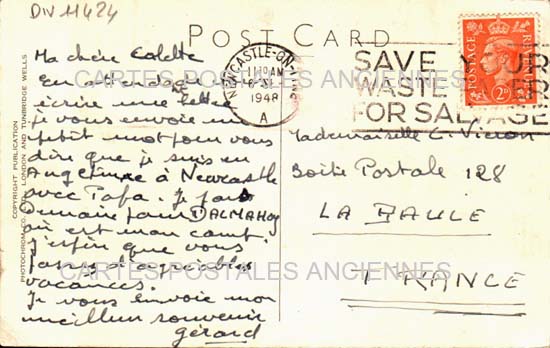 DIV 11424
POST CARD
Ma chère Colette
En attendant
écrire une lettre
je vous envoie un
petit mot pour vous
dire que je suis en
Angleterre à Newcastle
avec Papa. Je pars
demain pour DALMAHOY
où est mon camp.
J'espère que vous
passez d'agréables
vacances.
Je vous envoie mon
meilleur souvenir
gérard
COPYRIGHT PUBLICATION
PHOTOCHROM CO. LTD. LONDON AND TUNBRIDGE WELLS
NEWCASTLE-ON-TYNE
11 30 AM
1948
A
SAVE YOUR
WASTE PAPER
FOR SALVAGE
POSTAGE REVENUE
2D
Mademoiselle C. Vieron
Boite Postale 128
LA BAULE
FRANCE
CARTES POSTALES ANCIENNES
CARTES POSTALES ANCIENNES